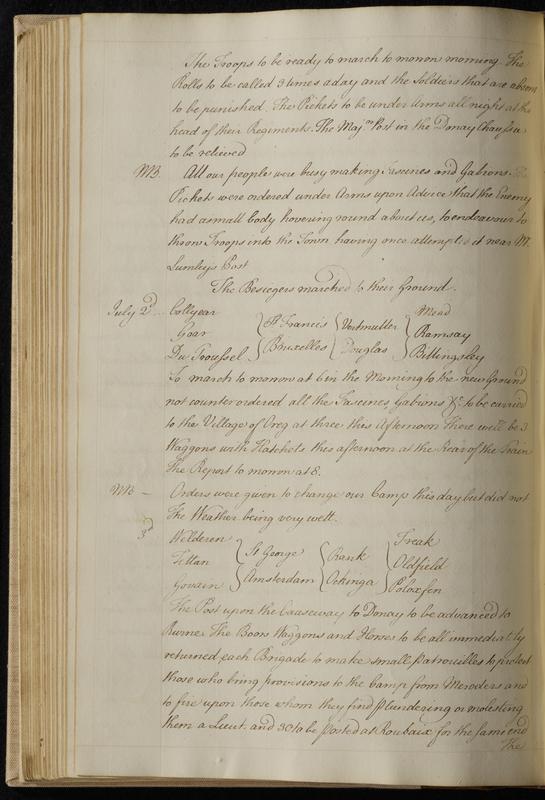 The Troops to be ready to march to morrow morning. The
Rolls to be called 3 times a day and the Soldiers that are absent
to be punished. The Pickets to be under Arms all night at the
head of their Regiments. The Maj.rs Post in the Donay Chaussee
to be relieved
NB. All our people were busy making Fascines and Gabions. The
Pickets were ordered under Arms upon Advice that the Enemy
had a small body hovering round about us, to endeavour to
throw Troops into the Town having once attempted it near Mr.
Lumley's Post
The Besiegers marched to their Ground.
July 2d... Collyear } St Francis { Vertmuller } Mead
Goar Ramsay
Du Troussel } Bruxelles { Douglas } Bittingsley
To march to morrow at 6 in the Morning to the new Ground
not counter ordered all the Fascines, Gabions &c. to be carried
to the Village of Oreg at three this Afternoon There will be 3
Waggons with Hatchets this afternoon at the Rear of the Train
The Report to morrow at 8.
NB — Orders were given to change our Camp this day but did not
The Weather being very wett.
3d Welderen Freak
Tettan { St George { Rank { Oldfield
Govain Amsterdam Ockinga Poloxfen
The Post upon the Causeway to Donay to be advanced to
Rurne. The Boors Waggons and Horses to be all immediatly
returned, each Brigade to make small Patrouilles to protect
those who bring provisions to the Camp from Meroders and
to fire upon those whom they find plundering or molesting
them a Lieut. and 30 to be posted at Roubaix for the same end
The